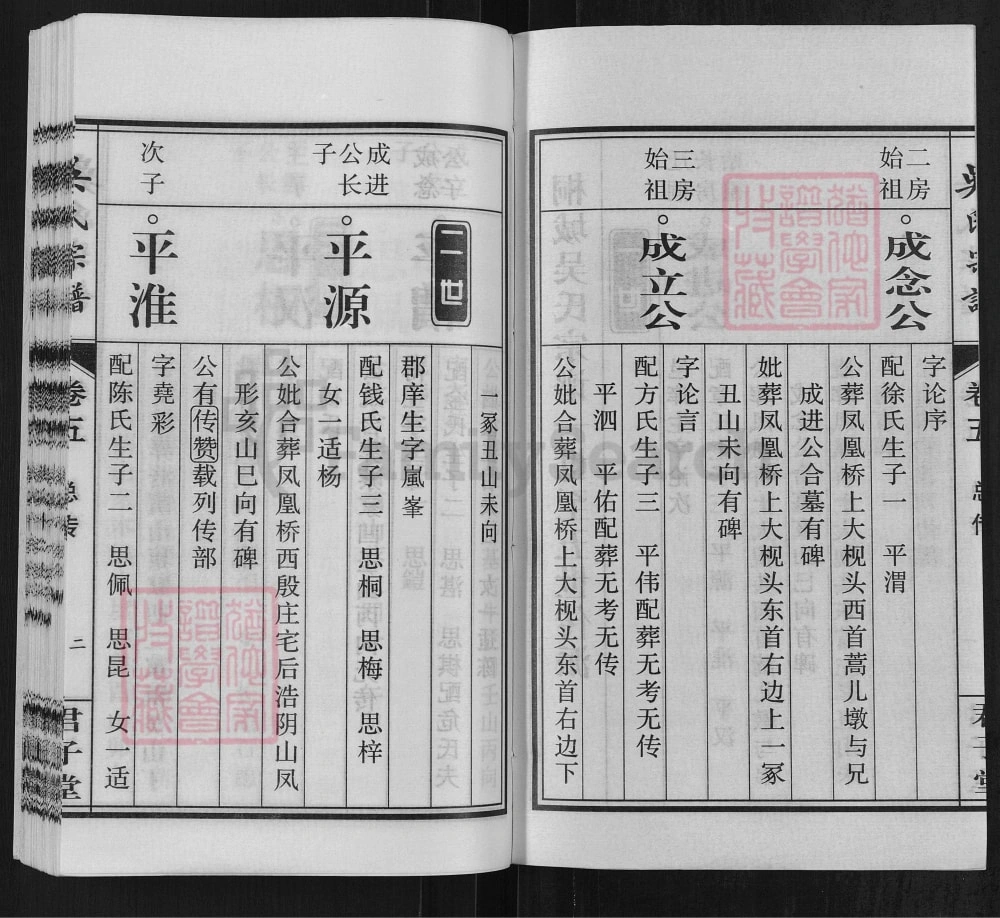 二房
始祖
成念公
字论序
配徐氏生子一 平渭
公葬凤凰桥上大枧头西首蒿儿墩与兄
成进公合墓有碑
妣葬凤凰桥上大枧头东首右边上一冢
丑山未向有碑
三房
始祖
成立公
字论言
配方氏生子三 平伟配葬无考无传
平泗 平佑配葬无考无传
公妣合葬凤凰桥上大枧头东首右边下
一冢丑山未向
二世
成进
公长
子
平源
郡庠生字嵐峯
配钱氏生子三 思桐 思梅 思梓
女一适杨
公妣合葬凤凰桥西殷庄宅后浩阴山凤
形亥山巳向有碑
公有传赞载列传部
次子
平淮
字堯彩
配陈氏生子二 思佩 思昆 女一适
吴氏宗谱
卷五
总传
二
君子堂